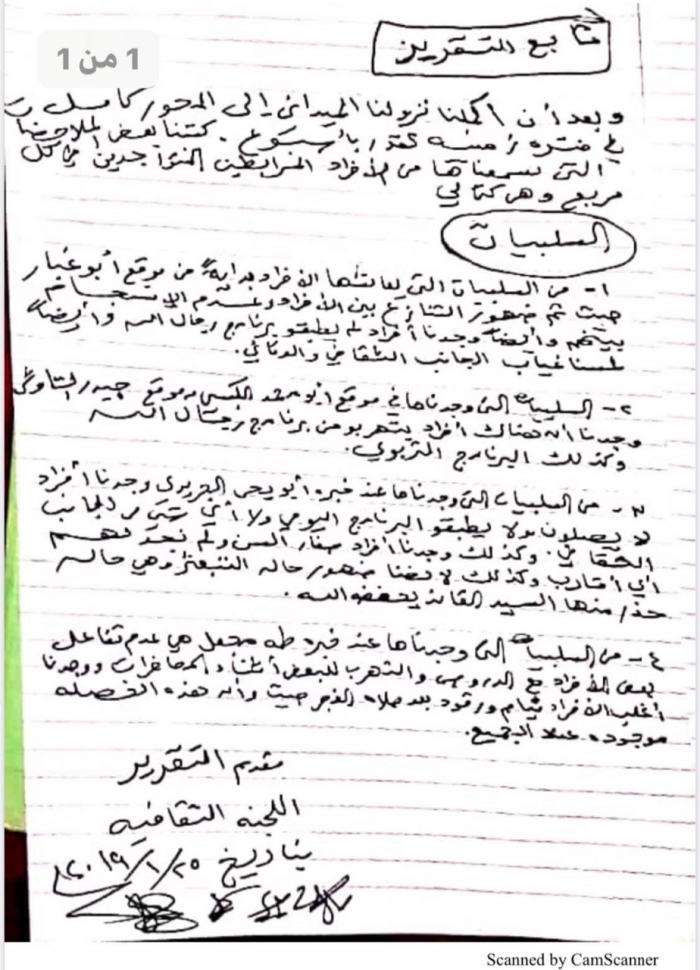 1 من 1
تابع التقرير
وبعد أن أكملنا نزولنا الميداني إلى المحور كامل
في فتره زمنيه تقدر بأسبوع. كتبنا بعض الملاحضا
التي سمعناها من الأفراد المرابطين المتواجدين في كل
مربع وهي كتالي
السلبيات
١- من السلبيات التي يعانيها الأفراد بداية من موقع أبو غبار
حيث تم ضهور التنازع بين الأفراد وعدم الإنسجام
بينهم وأيضا وجدنا أفراد لم يطبقو برنامج رجال الله وأيضاً
لمسنا غياب الجانب الثقافي والوقائي.
٢- السلبيات التي وجدناها في موقع أبو محمد الكبسي وموقع حيدر
وجدنا أنه هناك أفراد يتهربو من برنامج رجال الله
وكذلك البرنامج التربوي.
٣- من السلبيات التي وجدناها عند خبره أبو يحيى وجدنا أفراد
لا يصلون ولا يطبقو البرنامج اليومي ولا أي شي من الجانب
الثقافي. وكذلك وجدنا أفراد صغار السن ولم نجد لهم
أي أقارب وكذلك لاحضنا ضهور حاله التبعثر وهي حاله
حذر منها السيد القائد يحفضه الله.
٤- من السلبيات التي وجدناها عند خبره طه هي عدم تفاعل
بعض الأفراد مع الدروس والتهرب للبعض أثناء المحاضرات ووجدنا
أغلب الأفراد نيام ورقود بعد صلاه الفجر حيث وأنه هذه الخصله
موجوده عند الجميع.
مقدم التقرير
اللجنه الثقافيه
بتاريخ ٢٠١٩/١/٢٥
Scanned by CamScanner